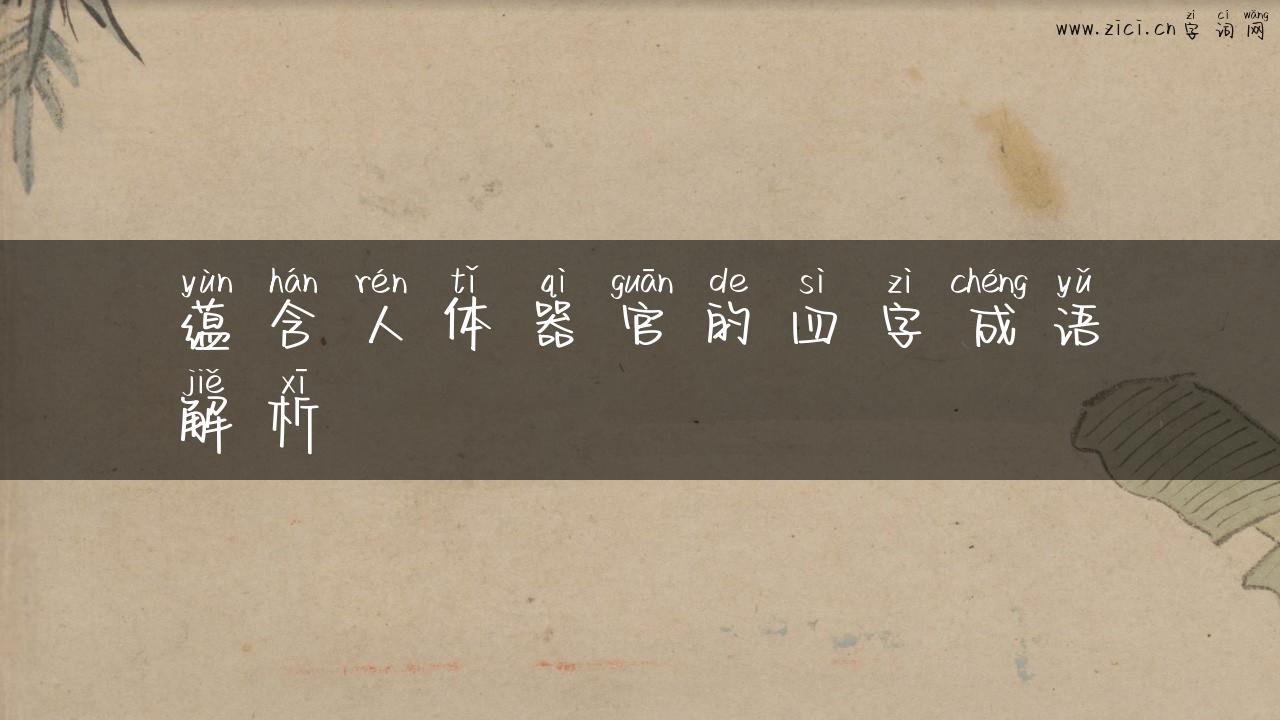 zì cí wǎng
www.zici.cn 字 词 网
yùn hán rén tǐ qì guān de sì zì chéng yǔ
蕴 含 人 体 器 官 的 四 字 成 语
jiě xī
解 析